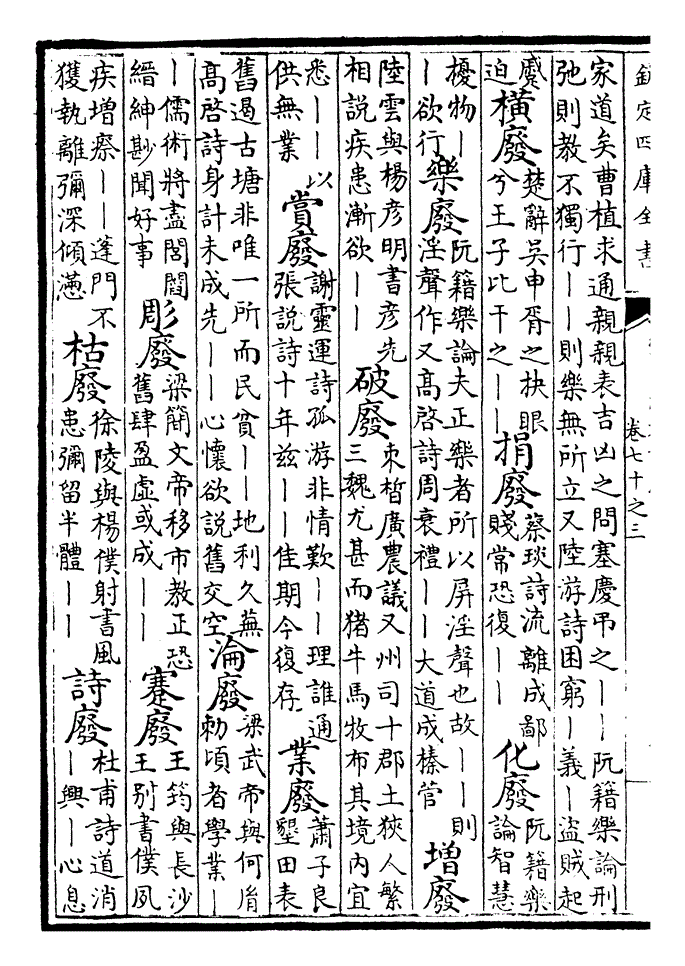 欽定四庫全書
卷七十之三
家道矣曹植求通親親表吉凶之問塞慶弔之丨丨阮籍樂論刑
弛則教不獨行丨丨則樂無所立又陸游詩困窮丨義丨盜賊起
蹙
迫
橫廢
楚辭吳申胥之抉眼
兮王子比干之丨丨
捐廢
蔡琰詩流離成鄙
賤常恐復丨丨
化廢
阮籍樂
論智慧
擾物丨
丨欲行
樂廢
阮籍樂論夫正樂者所以屏淫聲也故丨丨則
淫聲作又高啓詩周衰禮丨丨大道成榛菅
增廢
陸雲與楊彥明書彥先
相說疾患漸欲丨丨
破廢
束皙廣農議又州司十郡土狹人繁
三魏尤甚而猪牛馬牧布其境內宜
悉丨丨以
供無業
賞廢
謝靈運詩孤游非情歎丨丨理誰通
張說詩十年兹丨丨佳期今復存
業廢
蕭子良
墾田表
舊遏古塘非唯一所而民貧丨丨地利久蕪
高啓詩身計未成先丨丨心懷欲說舊交空
淪廢
梁武帝與何胤
勅頃者學業丨
丨儒術將盡閭閻
縉紳尠聞好事
彫廢
梁簡文帝移市教正恐
舊肆盈虛或成丨丨
蹇廢
王筠與長沙
王别書僕夙
疾增瘵丨丨蓬門不
獲執離彌深傾懣
枯廢
徐陵與楊僕射書風
患彌留半體丨丨
詩廢
杜甫詩道消
丨興丨心息